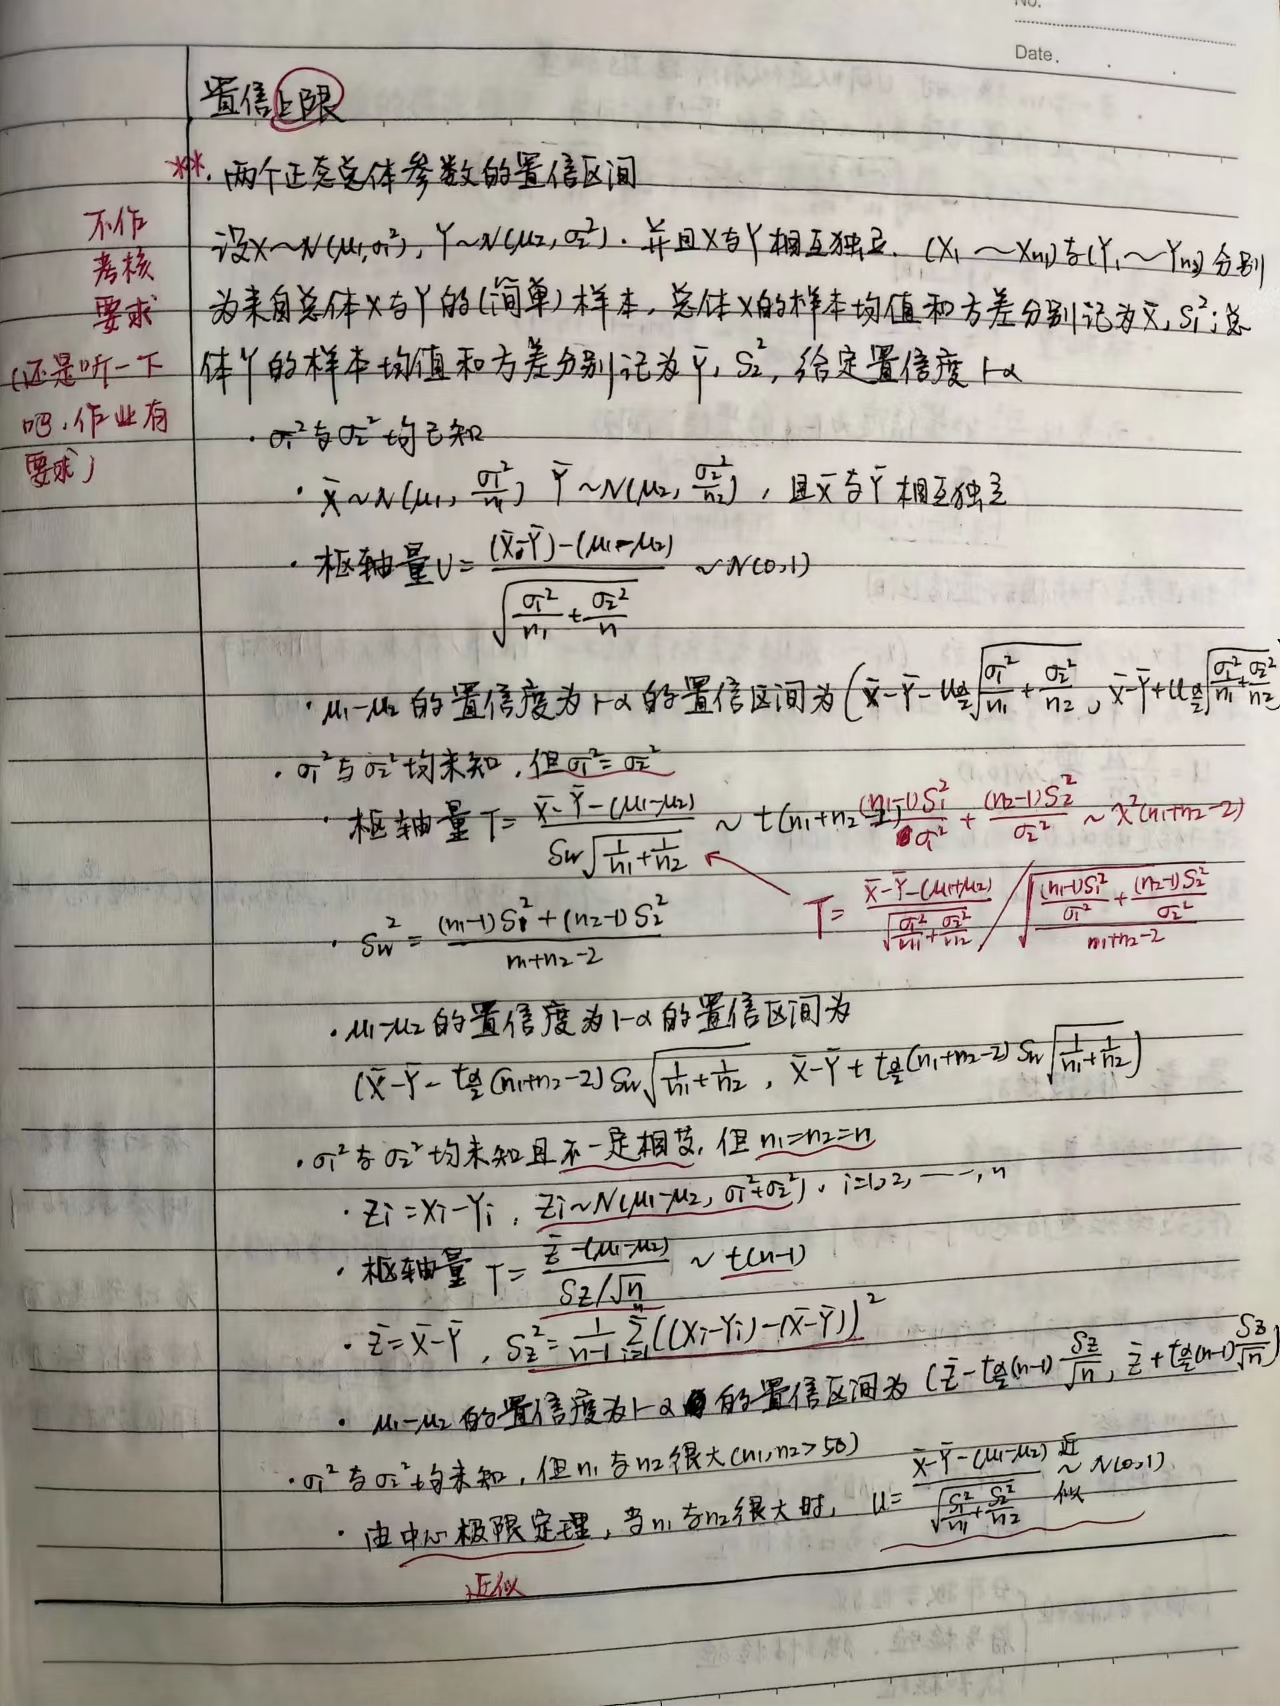 No.
Date.
置信上限
**. 两个正态总体参数的置信区间
不作
考核
要求
(还是听一下
吧,作业有
要求)
设X~N(μ₁,σ₁²), Y~N(μ₂,σ₂²). 并且X与Y相互独立. (X₁~Xn₁)与(Y₁~Yn₂)分别
为来自总体X与Y的(简单)样本, 总体X的样本均值和方差分别记为X̄, S₁²; 总
体Y的样本均值和方差分别记为Ȳ, S₂², 给定置信度1-α
· σ₁²与σ₂²均已知
· X̄~N(μ₁, σ₁²/n₁) Ȳ~N(μ₂, σ₂²/n₂), 且X̄与Ȳ相互独立
· 枢轴量U = ((X̄-Ȳ)-(μ₁-μ₂))/√(σ₁²/n₁+σ₂²/n) ~N(0,1)
· μ₁-μ₂的置信度为1-α的置信区间为(X̄-Ȳ-u_{α/2}√(σ₁²/n₁+σ₂²/n₂), X̄-Ȳ+u_{α/2}√(σ₁²/n₁+σ₂²/n₂)
· σ₁²与σ₂²均未知, 但σ₁²=σ₂²
· 枢轴量T = (X̄-Ȳ-(μ₁-μ₂))/(Sw√(1/n₁+1/n₂)) ~ t(n₁+n₂-2)
(n₁-1)S₁²/σ₁² + (n₂-1)S₂²/σ₂² ~ χ²(n₁+n₂-2)
T = (X̄-Ȳ-(μ₁+μ₂))/√(σ₁²/n₁+σ₂²/n₂) / √(((n₁-1)S₁²/σ₁²+(n₂-1)S₂²/σ₂²)/(n₁+n₂-2))
· Sw² = ((n₁-1)S₁²+(n₂-1)S₂²)/(n₁+n₂-2)
· μ₁-μ₂的置信度为1-α的置信区间为
(X̄-Ȳ-t_{α/2}(n₁+n₂-2)Sw√(1/n₁+1/n₂), X̄-Ȳ+t_{α/2}(n₁+n₂-2)Sw√(1/n₁+1/n₂))
· σ₁²与σ₂²均未知且不一定相等, 但n₁=n₂=n
· Zi=Xi-Yi, Zi~N(μ₁-μ₂, σ₁²+σ₂²), i=1,2,……,n
· 枢轴量 T = (Z̄-(μ₁-μ₂))/(Sz/√n) ~ t(n-1)
· Z̄=X̄-Ȳ, Sz²=1/(n-1) Σ_{i=1}^{n}((Xi-Yi)-(X̄-Ȳ))²
· μ₁-μ₂的置信度为1-α的置信区间为(Z̄-t_{α/2}(n-1)Sz/√n, Z̄+t_{α/2}(n-1)Sz/√n)
· σ₁²与σ₂²均未知, 但n₁与n₂很大(n₁,n₂>50)
· 由中心极限定理, 当n₁与n₂很大时, U=(X̄-Ȳ-(μ₁-μ₂))/√(S₁²/n₁+S₂²/n₂) 近似~ N(0,1)
近似